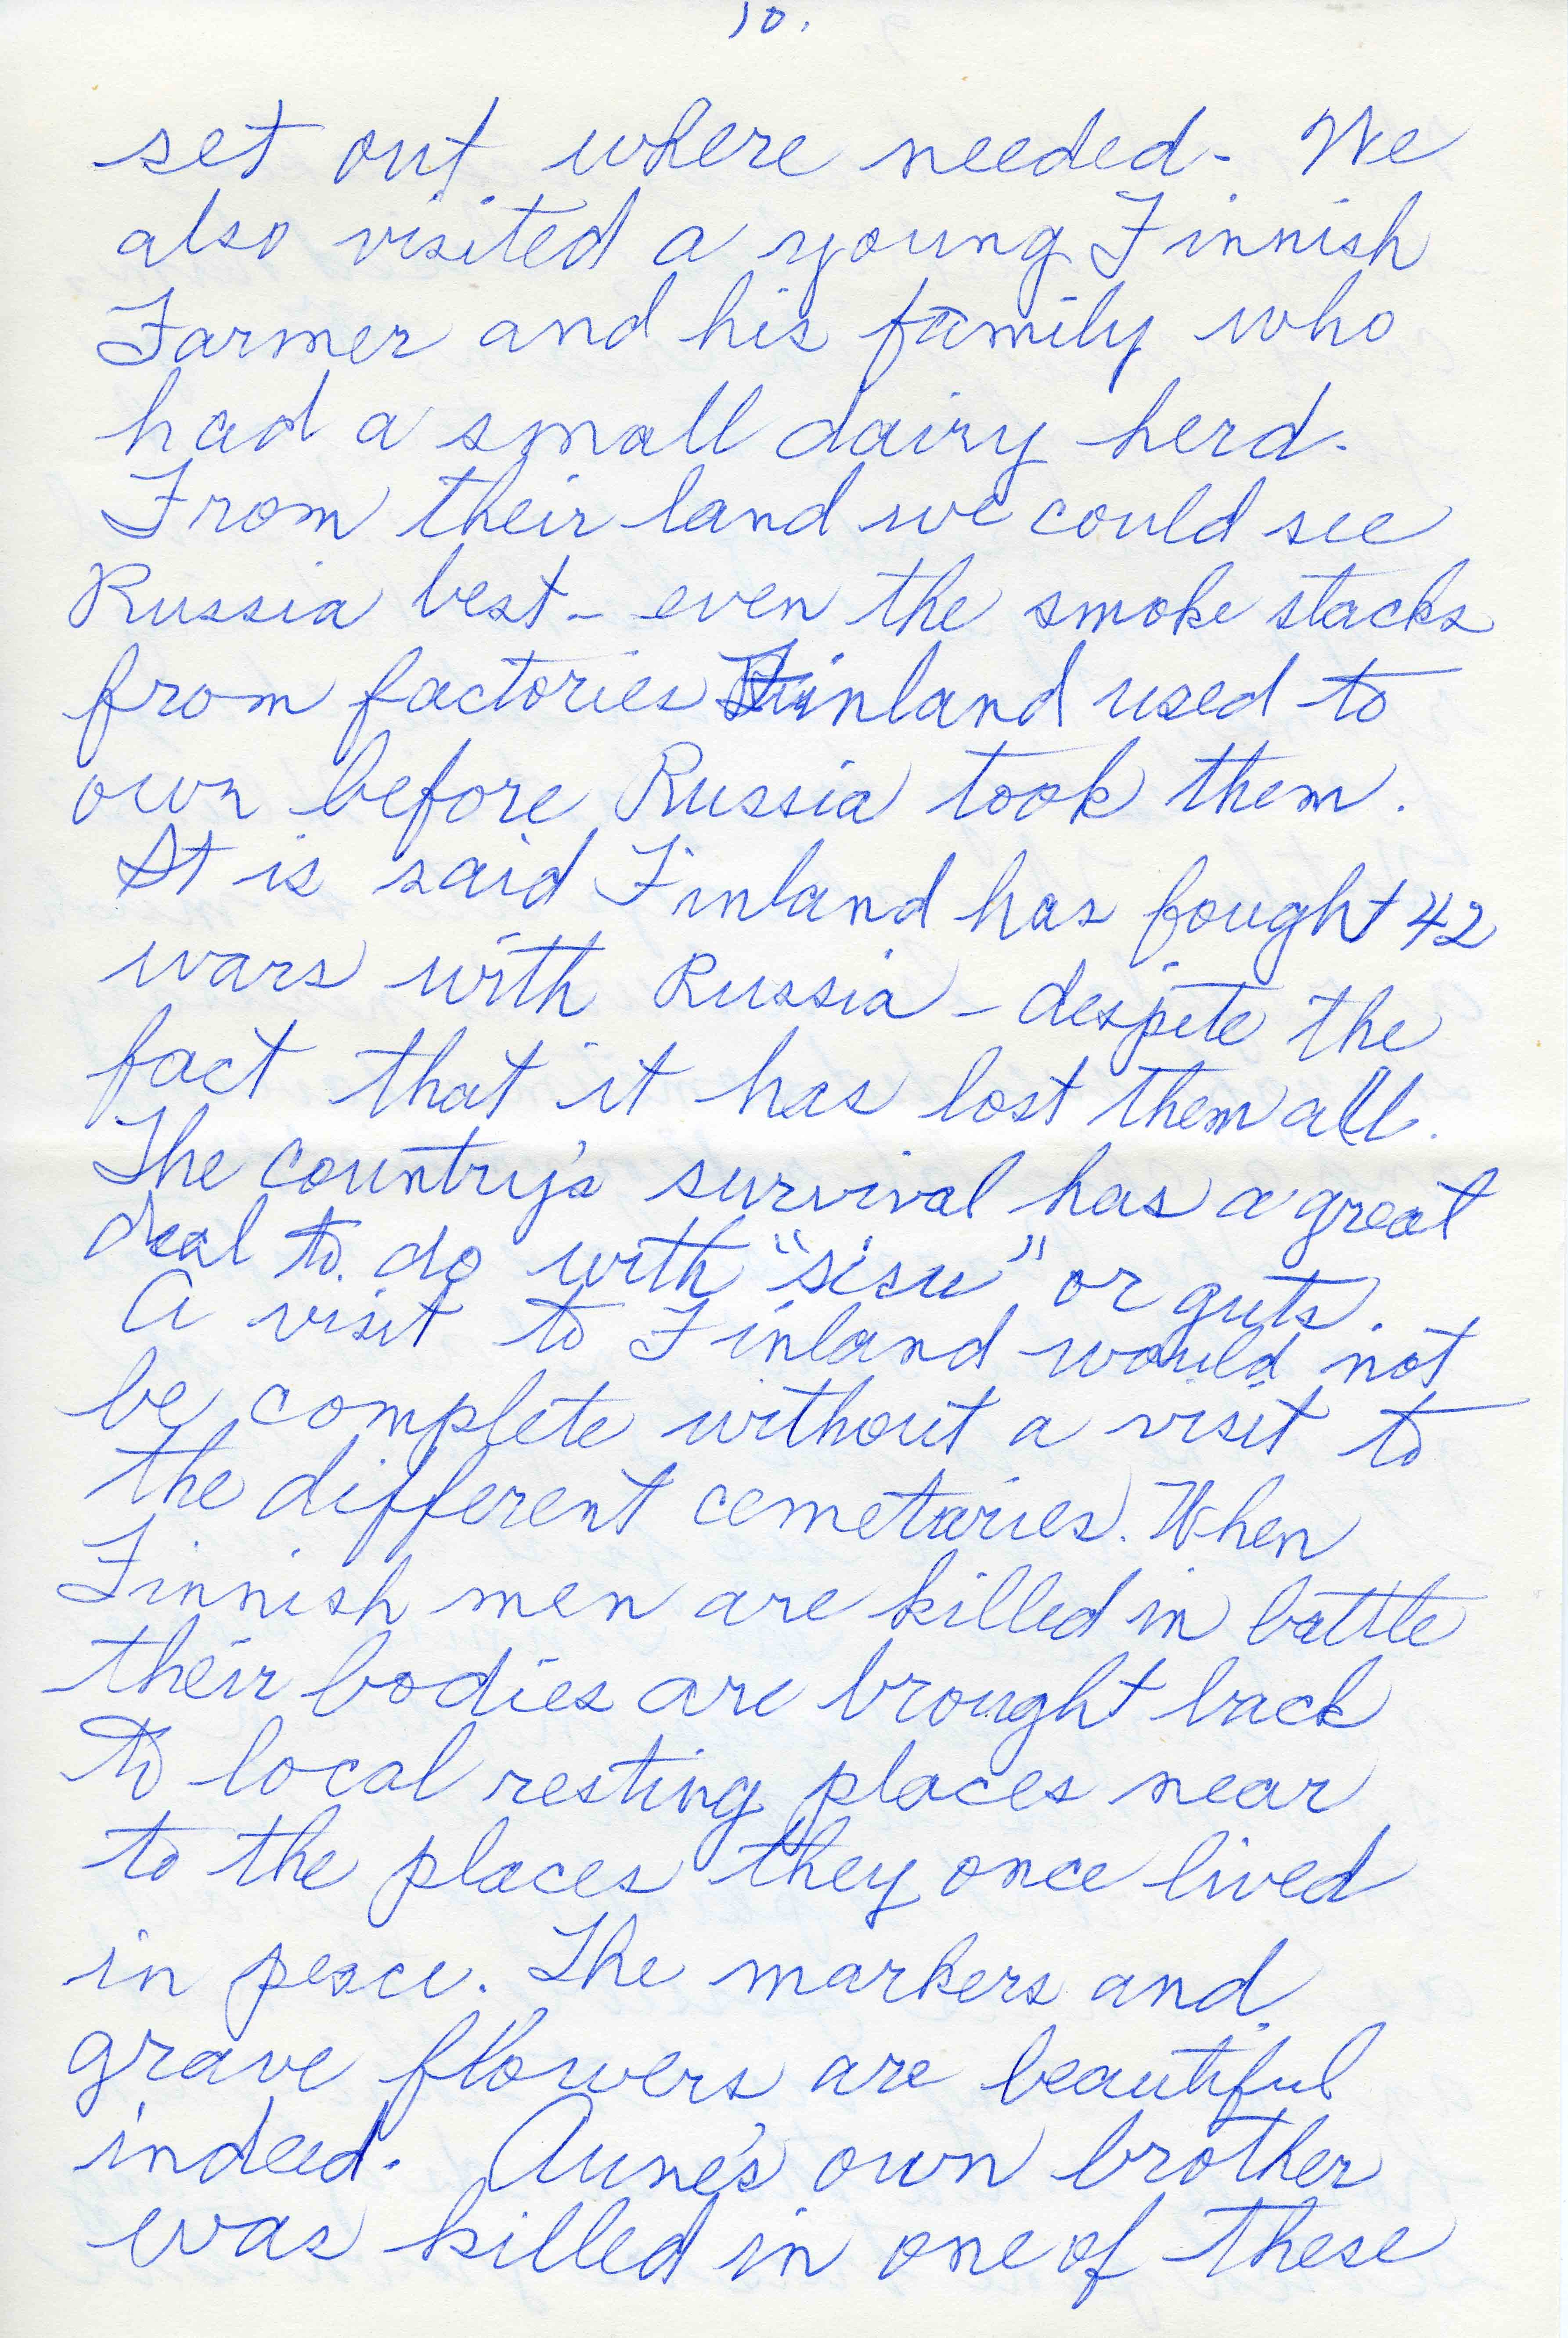 10.
set out where needed. We
also visited a young Finnish
Farmer and his family who
had a small dairy herd.
From their land we could see
Russia best - even the smoke stacks
from factories Finland used to
own before Russia took them.
It is said Finland has fought 42
wars with Russia - despite the
fact that it has lost them all.
The country's survival has a great
deal to do with "sisu" or guts.
A visit to Finland would not
be complete without a visit to
the different cemetaries. When
Finnish men are killed in battle
their bodies are brought back
to local resting places near
to the places they once lived
in peace. The markers and
grave flowers are beautiful
indeed. Aune's own brother
was killed in one of these